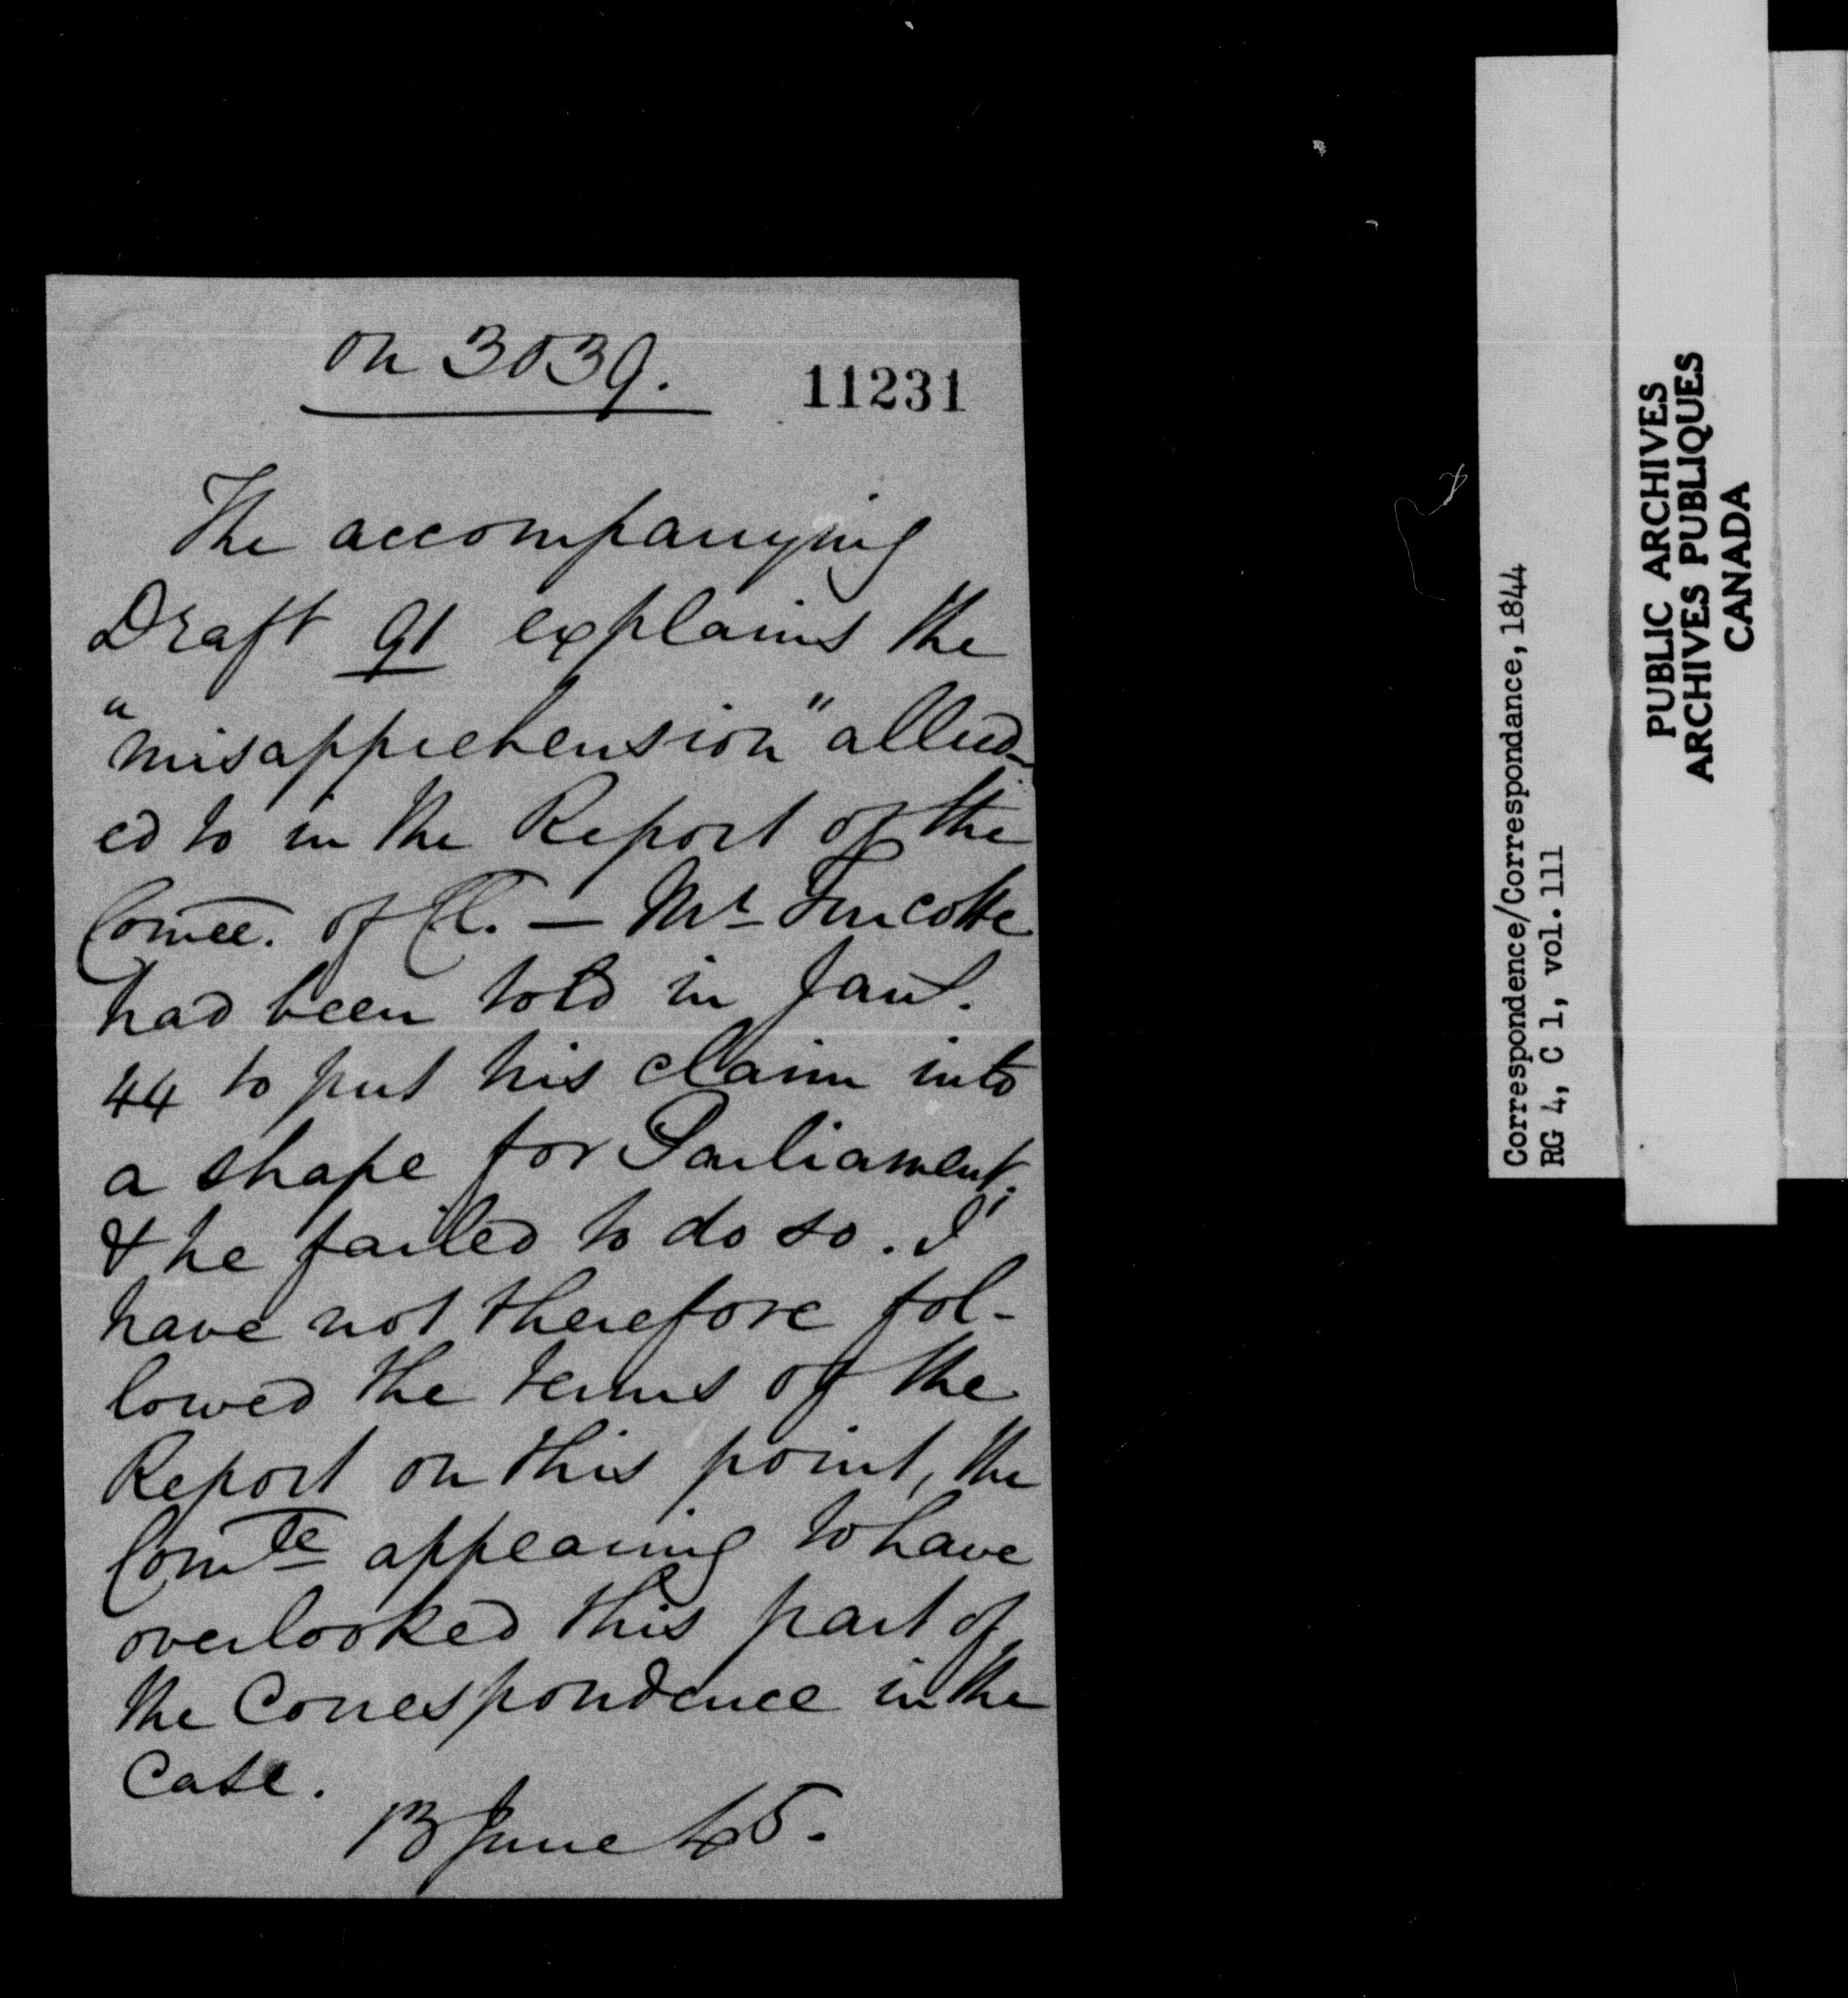 on 3039.
11231
The accompanying
Draft 91 explains the
"misapprehension" allud-
ed to in the Report of the
Comee. of Cl. — Mr Turcotte
had been told in Jany.
44 to put his claim into
a shape for Parliament;
& he failed to do so. I
have not therefore fol-
lowed the terms of the
Report on this point, the
Comte appearing to have
overlooked this part of
the Correspondence in the
Case.
13 June 45.
Correspondence/Correspondance, 1844
RG 4, C 1, vol. 111
PUBLIC ARCHIVES
ARCHIVES PUBLIQUES
CANADA